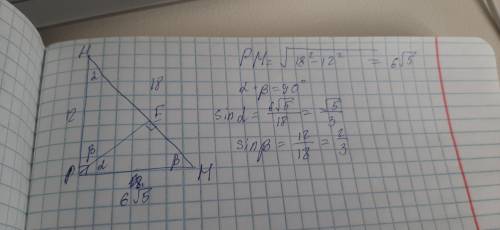 H
α
18
12
E
β
α
β
P
M
6√5
PM = √18² - 12² = 6√5
α + β = 90°
sin α = 6√5/18 = √5/3
sin β = 12/18 = 2/3